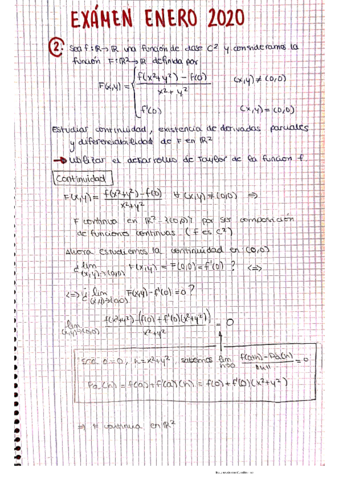 EXÁMEN ENERO 2020
2. Sea f: ℝ→ℝ una función de clase C² y consideramos la
función F: ℝ²→ℝ definida por
F(x,y) = { f(x²+y²) - f(0) / x²+y²   (x,y) ≠ (0,0)
f'(0)   (x,y) = (0,0)
Estudiar continuidad, existencia de derivadas parciales
y diferenciabilidad de F en ℝ²
→ Utilizar el desarrollo de Taylor de la función f.
Continuidad
F(x,y) = f(x²+y²) - f(0) / x²+y²  ∀ (x,y) ≠ (0,0) ⇒
F continua en ℝ² - {(0,0)} por ser composición
de funciones continuas. (f es C²)
Ahora estudiemos la continuidad en (0,0)
¿ lim (x,y)→(0,0) F(x,y) = F(0,0) = f'(0) ? ⇔
⇔ ¿ lim (x,y)→(0,0) F(x,y) - f'(0) = 0 ?
lim (x,y)→(0,0) f(x²+y²) - [f(0) + f'(0)(x²+y²)] / x²+y² = 0
Sea a=0, h=x²+y², sabemos lim h→0 f(a+h) - Pa(h) / ||h|| = 0
Pa(h) = f(a) + f'(a)(h) = f(0) + f'(0)(x²+y²)
⇒ F continua en ℝ²